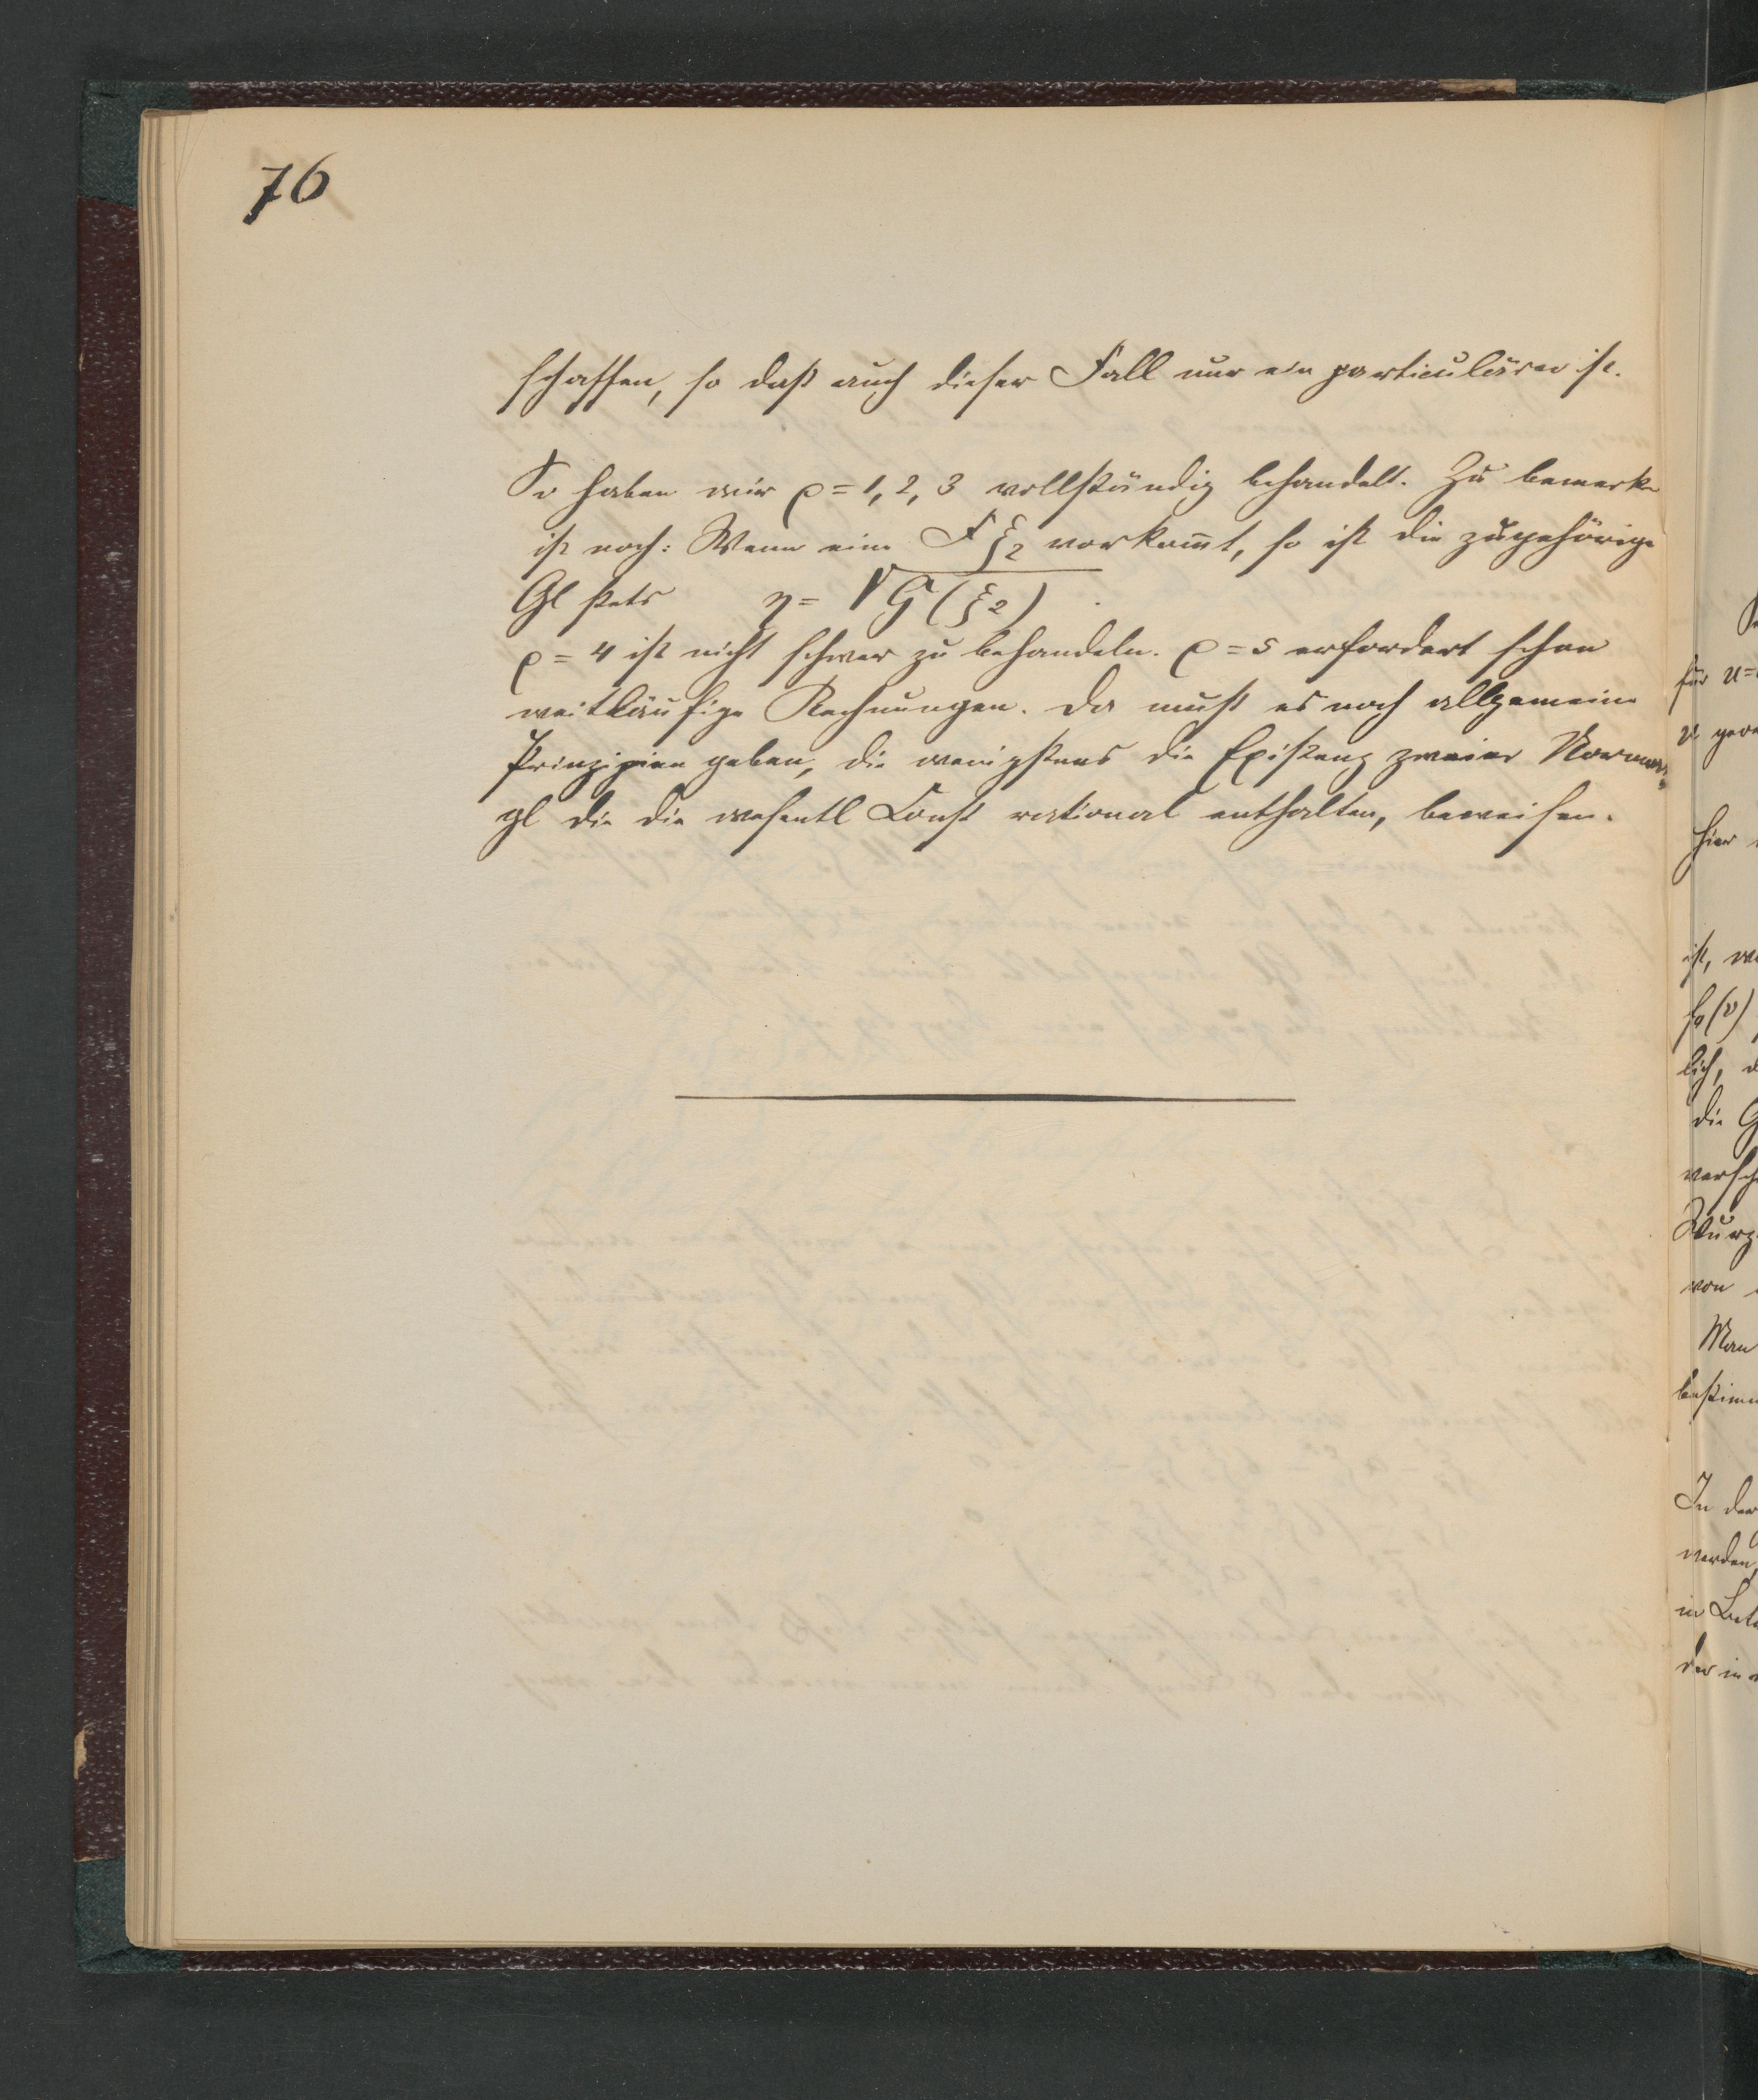 76
schaffen, so daß auch dieser Fall nur ein particulärer ist.
So haben wir ρ = 1, 2, 3 vollständig behandelt. Zu bemerken
ist noch: Wenn eine F ξ₂ vorkom̅t, so ist die zugehörige
Gl stets η = √G(ξ₂) .
ρ = 4 ist nicht schwer zu behandeln. ρ = 5 erfordert schon
weitläufige Rechnungen. Da muß es noch allgemeine
Prinzipien geben, die wenigstens die Existenz zweier Normal-
gl die die wesentl Const rational enthalten, beweisen.
für u=
hier
ist,
lich,
die G
von
Man
In der
werden,